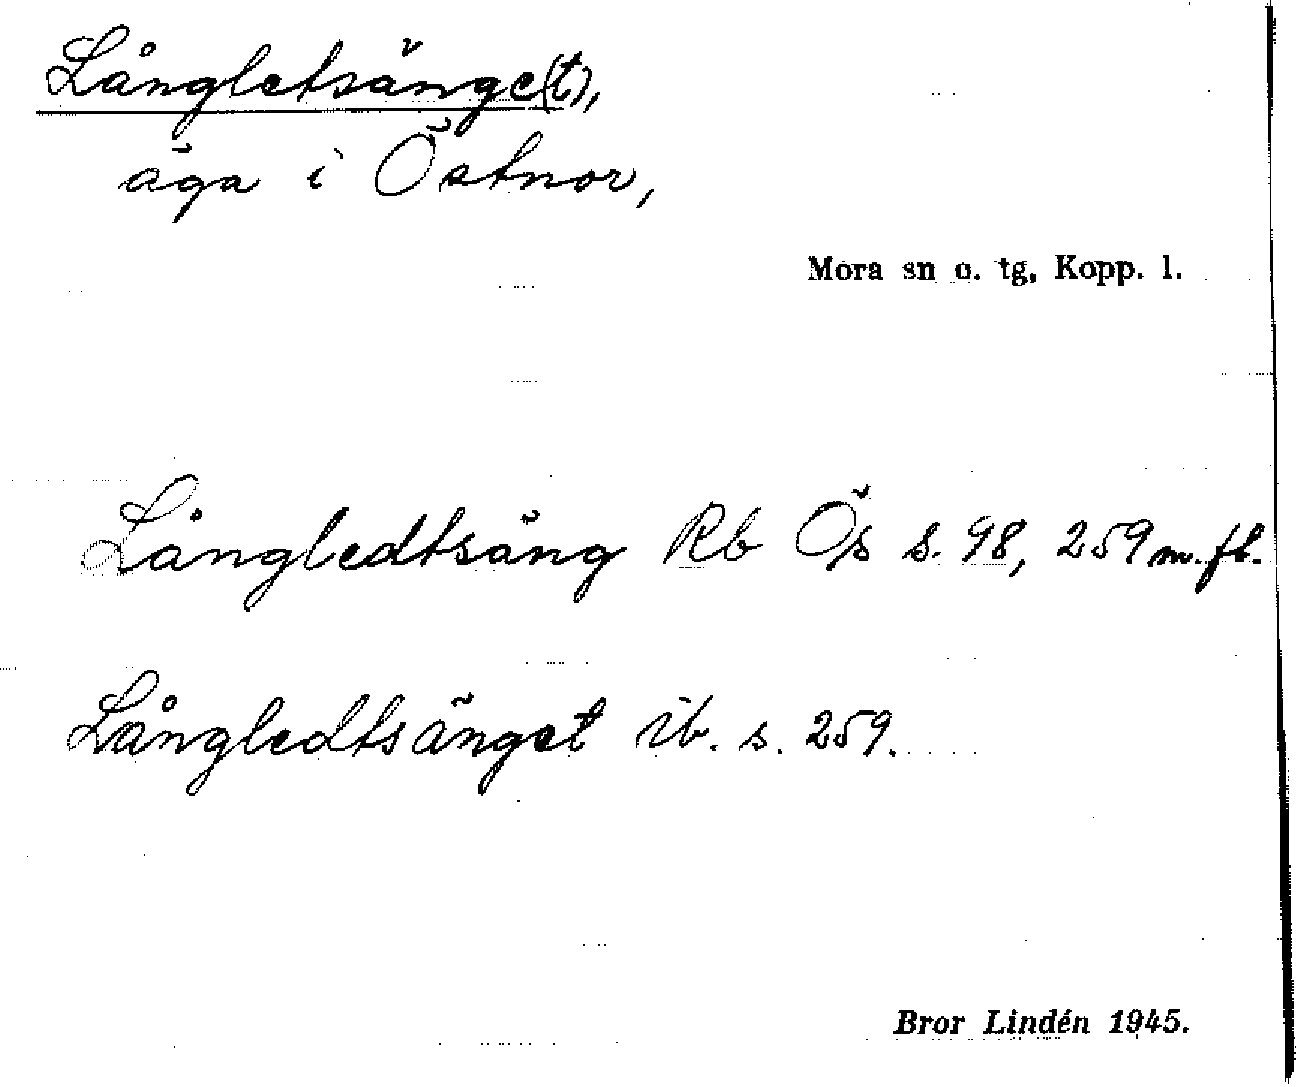 Långletsänge(t),
äga i Östnor,
Mora sn o. tg, Kopp. l.
Långledtsäng Rb Ös s. 98, 259 m. fl.
Långledtsänget ib. s. 259.
Bror Lindén 1945.